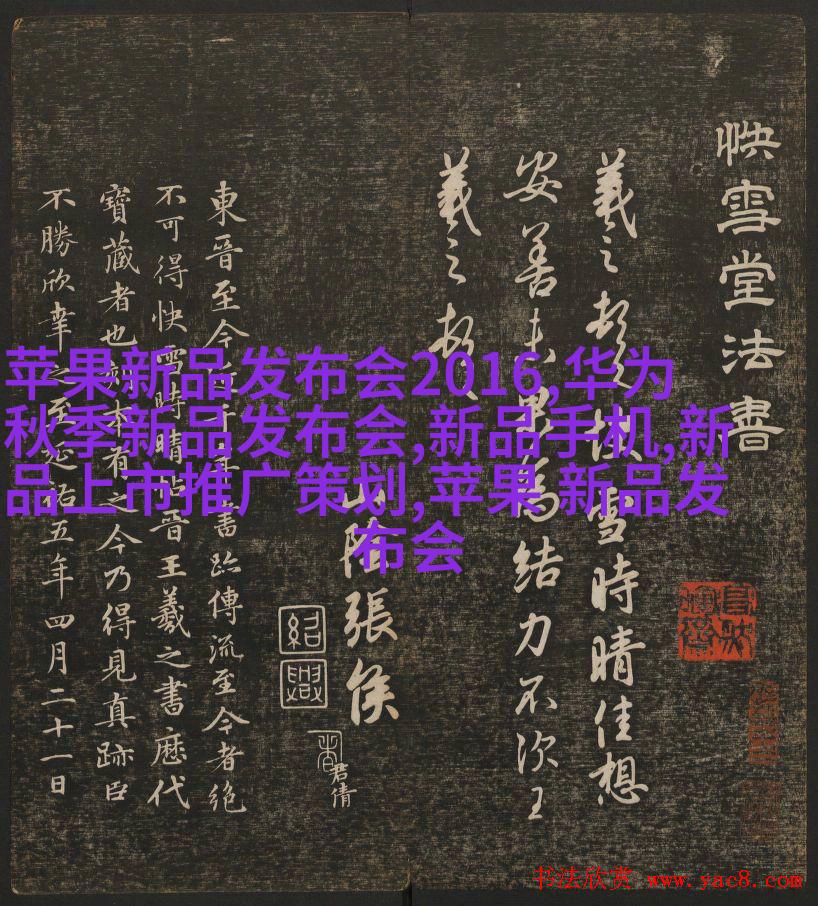 苹果新品发布会2016,华为
秋季新品发布会,新品手机,新
品上市推广策划,苹果 新品发
布会
快雪堂法書
羲之頓首快雪時晴佳想
安善未果為結力不次王
羲之頓首
山陰張侯
紹興
君倩
東晉至今近千年書跡傳流至今者絕
不可得快雪時晴帖晉王羲之書歷代
寶藏者也刻本有之今乃得見真跡臣
不勝欣幸之至延祐五年四月二十一日
书法欣赏 www.yac8.com